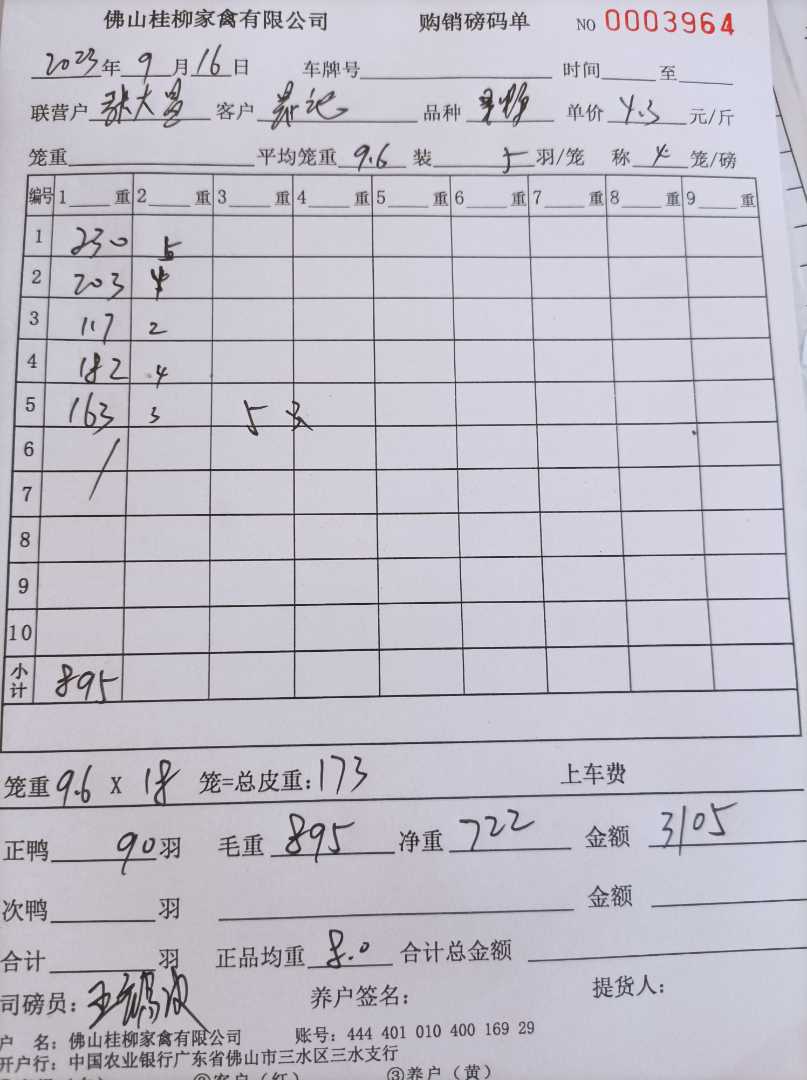 佛山桂柳家禽有限公司 购销磅码单 NO 0003964
2023年9月16日 车牌号 时间 至
联营户 张大昌 客户 记 品种 单价 4.3 元/斤
笼重 平均笼重 9.6 装 5 羽/笼 称 4 笼/磅
编号 1 重 2 重 3 重 4 重 5 重 6 重 7 重 8 重 9 重
1 230 5
2 203 4
3 117 2
4 182 4
5 163 3 5
6
7
8
9
10
小计 895
笼重 9.6 X 18 笼=总皮重: 173 上车费
正鸭 90 羽 毛重 895 净重 722 金额 3105
次鸭 羽 金额
合计 羽 正品均重 8.0 合计总金额
司磅员: 王 养户签名: 提货人:
户 名: 佛山桂柳家禽有限公司 账号: 444 401 010 400 169 29
开户行: 中国农业银行广东省佛山市三水区三水支行
②客户(红) ③养户(黄)